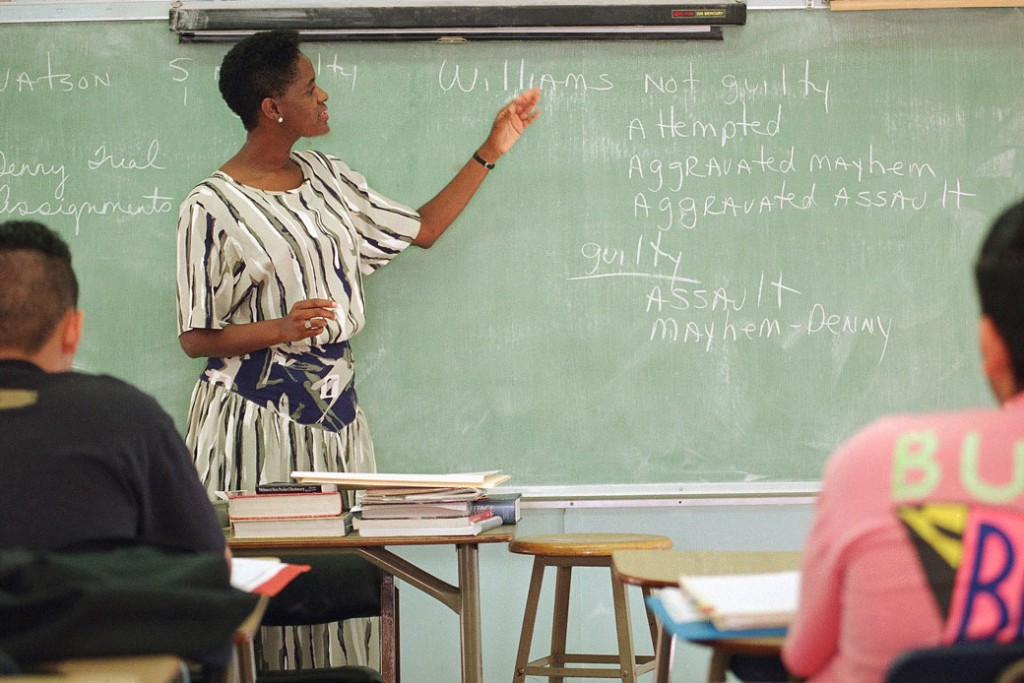 Watson
Denny Trial
Assignments
Williams Not guilty
Attempted
Aggravated mayhem
Aggravated Assault
guilty
Assault
Mayhem-Denny
BU
B